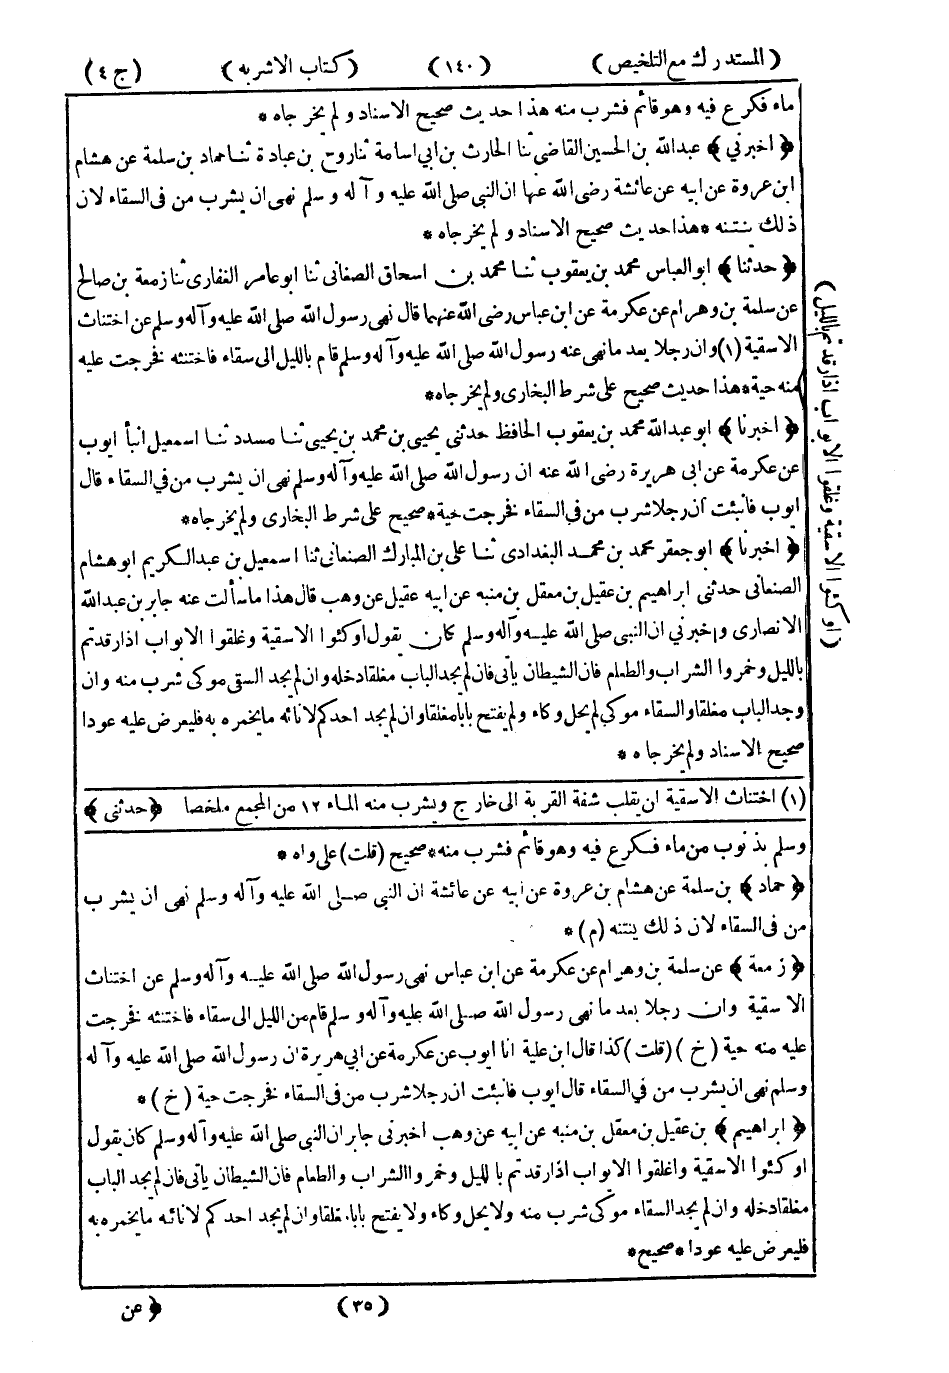 (المستدرك مع التلخيص) (١٤٠) (كتاب الاشربه) (ج ٤)
ماء فكرع فيه وهو قائم فشرب منه هذا حديث صحيح الاسناد ولم يخرجاه *
﴿ اخبرني ﴾ عبدالله بن الحسين القاضي ثنا الحارث بن ابي اسامة ثنا روح بن عبادة ثنا حماد بن سلمة عن هشام
ابن عروة عن ابيه عن عائشة رضى الله عنها ان النبي صلى الله عليه وآله وسلم نهى ان يشرب من فى السقاء لان
ذلك ينتنه * هذا حديث صحيح الاسناد ولم يخرجاه *
﴿ حدثنا ﴾ ابو العباس محمد بن يعقوب ثنا محمد بن اسحاق الصغانى ثنا ابو عامر الغفارى ثنا زمعة بن صالح
عن سلمة بن وهرام عن عكرمة عن ابن عباس رضى الله عنهما قال نهى رسول الله صلى الله عليه وآله وسلم عن اختناث
الاسقية (١) وان رجلا بعد ما نهى عنه رسول الله صلى الله عليه وآله وسلم قام بالليل الى سقاء فاختنثه فخرجت عليه
منه حية * هذا حديث صحيح على شرط البخارى ولم يخرجاه *
﴿ اخبرنا ﴾ ابو عبدالله محمد بن يعقوب الحافظ حدثني يحيى بن محمد بن يحيى ثنا مسدد ثنا اسمعيل انبأ ايوب
عن عكرمة عن ابى هريرة رضى الله عنه ان رسول الله صلى الله عليه وآله وسلم نهى ان يشرب من في السقاء قال
ايوب فانبئت ان رجلا شرب من في السقاء فخرجت حية * صحيح على شرط البخارى ولم يخرجاه *
﴿ اخبرنا ﴾ ابو جعفر محمد بن محمد البغدادى ثنا على بن المبارك الصنعانى ثنا اسمعيل بن عبدالكريم ابو هشام
الصنعانى حدثنى ابراهيم بن عقيل بن معقل بن منبه عن ابيه عقيل عن وهب قال هذا ما سألت عنه جابر بن عبدالله
الانصارى واخبرني ان النبي صلى الله عليه وآله وسلم كان يقول اوكئوا الاسقية وغلقوا الابواب اذا رقدتم
بالليل وخمروا الشراب والطعام فان الشيطان يأتى فان لم يجد الباب مغلقا دخله وان لم يجد السقى موكى شرب منه وان
وجد الباب مغلقا والسقاء موكي لم يحل وكاء ولم يفتح بابا مغلقا وان لم يجد احدكم لانائه ما يخمره به فليعرض عليه عودا
صحيح الاسناد ولم يخرجاه *
(اوكئوا الاسقية وغلقوا الابواب اذا رقدتم بالليل)
(١) اختناث الاسقية ان يقلب شفة القربة الى خارج ويشرب منه الماء ١٢ من المجمع ملخصا ﴿ حدثنى ﴾
وسلم بذنوب من ماء فكرع فيه وهو قائم فشرب منه * صحيح (قلت) على واه *
﴿ حماد ﴾ بن سلمة عن هشام بن عروة عن ابيه عن عائشة ان النبي صلى الله عليه وآله وسلم نهى ان يشرب
من فى السقاء لان ذلك ينتنه (م) *
﴿ زمعة ﴾ عن سلمة بن وهرام عن عكرمة عن ابن عباس نهى رسول الله صلى الله عليه وآله وسلم عن اختناث
الاسقية وان رجلا بعد ما نهى رسول الله صلى الله عليه وآله وسلم قام من الليل الى سقاء فاختنثه فخرجت
عليه منه حية (خ) (قلت) كذا قال ابن علية انا ايوب عن عكرمة عن ابي هريرة ان رسول الله صلى الله عليه وآله
وسلم نهى ان يشرب من في السقاء قال ايوب فانبئت ان رجلا شرب من فى السقاء فخرجت حية (خ) *
﴿ ابراهيم ﴾ بن عقيل بن معقل بن منبه عن ابيه عن وهب اخبرنى جابر ان النبي صلى الله عليه وآله وسلم كان يقول
اوكئوا الاسقية واغلقوا الابواب اذا رقدتم بالليل وخمروا الشراب والطعام فان الشيطان يأتى فان لم يجد الباب
مغلقا دخله وان لم يجد السقاء موكى شرب منه ولا يحل وكاء ولا يفتح بابا مغلقا وان لم يجد احدكم لانائه ما يخمره به
فليعرض عليه عودا * صحيح *
(٣٥) ﴿ عن